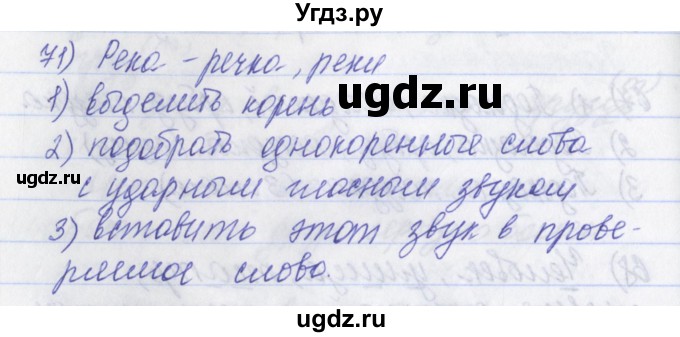 Угдз.ру
71) Река - речка, реки
1) выделить корень
ugdz.ru
2) подобрать однокоренные слова
ugdz.ru
с ударным гласным звуком
3) вставить этот звук в прове-
ряемое слово.
ugdz.ru
ugdz.ru